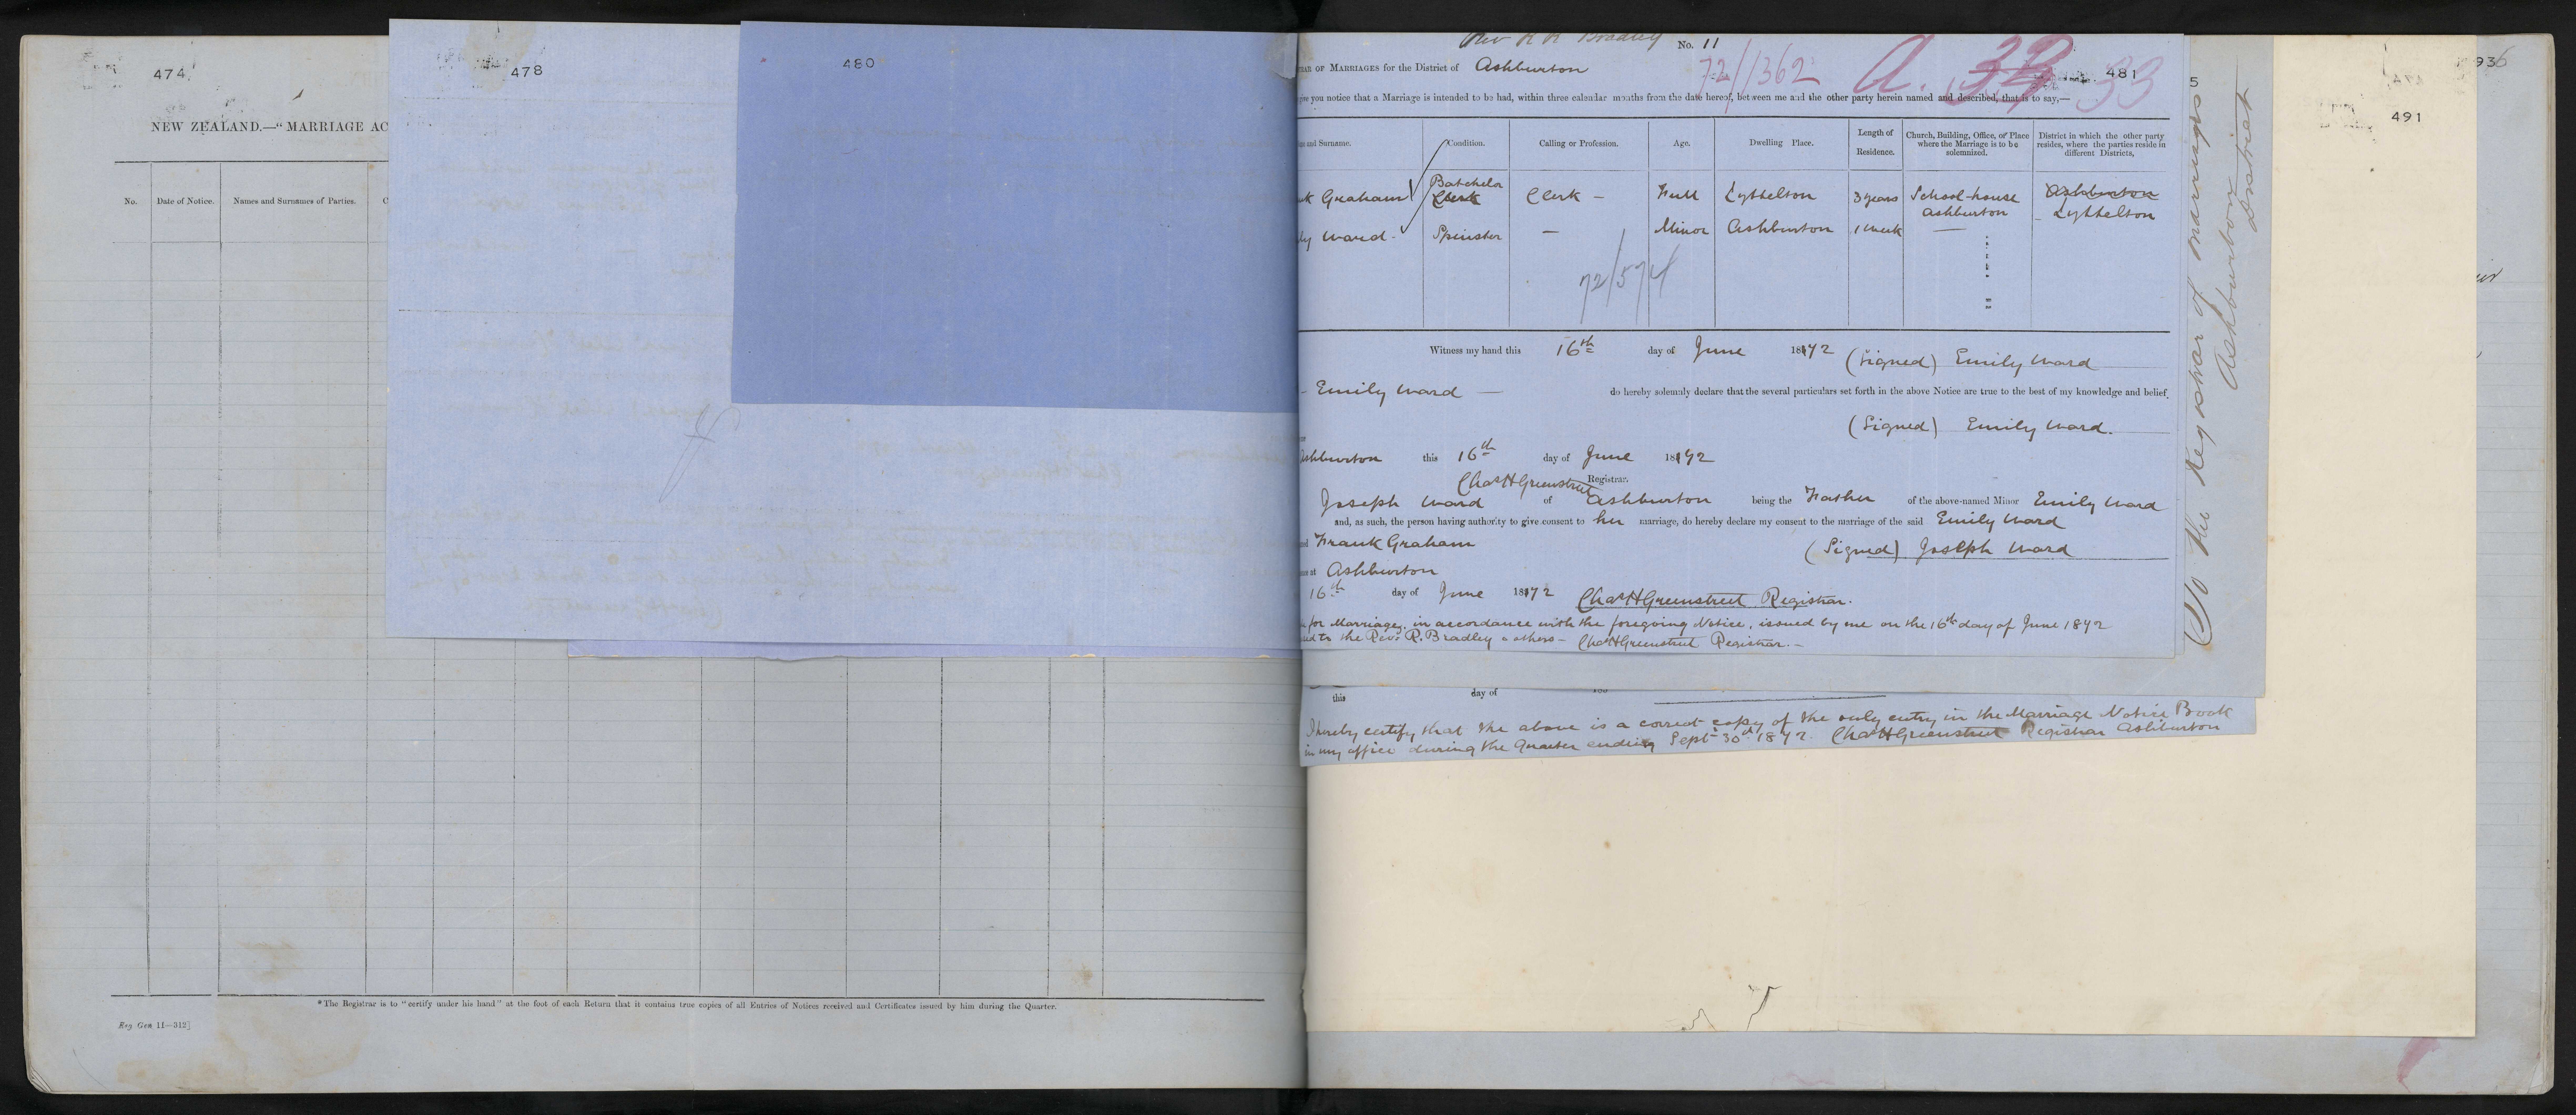 474
NEW ZEALAND.—"MARRIAGE AC
No.
Date of Notice.
Names and Surnames of Parties.
C
*The Registrar is to "certify under his hand" at the foot of each Return that it contains true copies of all Entries of Notices received and Certificates issued by him during the Quarter.
Reg Gen 11—312]
478
480
Rev R R Bradley No. 11
OF MARRIAGES for the District of Ashburton
72/1362 A. 33
481
give you notice that a Marriage is intended to be had, within three calendar months from the date hereof, between me and the other party herein named and described, that is to say,—
and Surname.
Condition.
Calling or Profession.
Age.
Dwelling Place.
Length of Residence.
Church, Building, Office, or Place where the Marriage is to be solemnized.
District in which the other party resides, where the parties reside in different Districts,
Graham Batchelor Clerk Clerk – Full Lyttelton 3 years School-house Ashburton Ashburton Lyttelton
Ward - Spinster — Minor Ashburton 1 week —
72/574
Witness my hand this 16th day of June 1872 (Signed) Emily Ward
– Emily Ward — do hereby solemnly declare that the several particulars set forth in the above Notice are true to the best of my knowledge and belief.
(Signed) Emily Ward.
Ashburton this 16th day of June 1872
Chas H Greenstreet Registrar.
Joseph Ward of Ashburton being the Father of the above-named Minor Emily Ward
and, as such, the person having authority to give consent to her marriage, do hereby declare my consent to the marriage of the said Emily Ward
Frank Graham (Signed) Joseph Ward
at Ashburton
16th day of June 1872 Chas H Greenstreet Registrar.
for Marriage, in accordance with the foregoing Notice, issued by me on the 16th day of June 1872
to the Revd R. Bradley & others – Chas H Greenstreet Registrar.–
this day of
I hereby certify that the above is a correct copy of the only entry in the Marriage Notice Book
in my office during the Quarter ending Sept 30th 1872. Chas H Greenstreet Registrar Ashburton
5
To the Registrar of Marriages
Ashburton
District
936
491